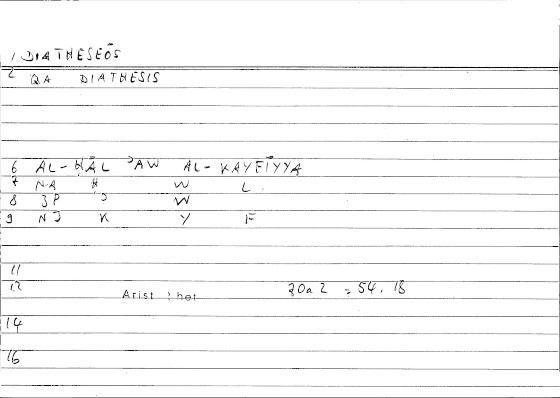 1 DIATHESEŌS
2 QA DIATHESIS
6 AL-ḤĀL ʾAW AL-KAYFĪYYA
7 NA Ḥ W L
8 3P ʾ W
9 NJ K Y F
11
12 Arist : het 20a2 = 54.18
14
16